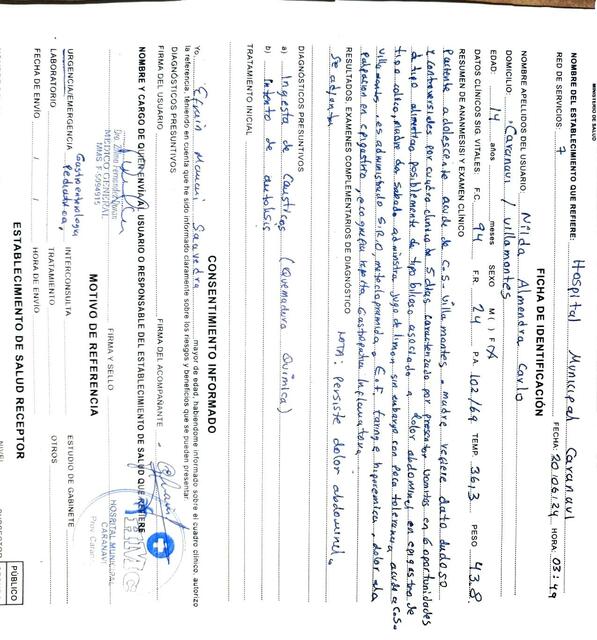 MINISTERIO DE SALUD
NOMBRE DEL ESTABLECIMIENTO QUE REFIERE: Hospital Municipal Caranavi
RED DE SERVICIOS: 7 FECHA: 20/06/24 HORA: 03:49
FICHA DE IDENTIFICACIÓN
NOMBRE APELLIDOS DEL USUARIO Nilda Almendra Carlo
DOMICILIO: Caranavi / Villamontes
EDAD: 14 años meses SEXO M ( ) F (X)
DATOS CLÍNICOS SIG. VITALES: F.C. 94 F.R. 24 P.A. 102/69 TEMP. 36,3 PESO 43.8
RESUMEN DE ANAMESISI Y EXAMEN CLÍNICO
Paciente adolescente acude de C.S. Villamontes, madre refiere dato dudoso
y controversiales por cuadro clinico de 5 dias caracterizado por presentar vomitos en 6 oportunidades
de tipo alimenticio posiblemente de tipo bilioso asociado a dolor abdominal en epigastrio de
tipo colico, madre dia sabado administra jugo de limon sin embargo con poca tolerancia acude a C.S.
Villamontes, es administrado S.R.O, metoclopramida, E.F. faringe hiperemica, dolor a la
palpacion en epigastrio, ecografia reporta Gastropatia Inflamatoria.
RESULTADOS, EXAMENES COMPLEMENTARIOS DE DIAGNÓSTICO
Se adjunta NOTA: Persiste dolor abdominal
DIAGNÓSTICOS PRESUNTIVOS
a) Ingesta de Causticos (Quemadura Quimica)
b) Intento de autolisis
TRATAMIENTO INICIAL
CONSENTIMIENTO INFORMADO
Yo, Efrain Mamani Saavedra mayor de edad, habiéndome informado sobre el cuadro clínico, autorizo
la referencia, teniendo en cuenta que he sido informado claramente sobre los riesgos y beneficios que se pueden presentar.
DIAGNÓSTICOS PRESUNTIVOS
FIRMA DEL USUARIO FIRMA DEL ACOMPAÑANTE
NOMBRE Y CARGO DE QUE ENVIA AL USUARIO O RESPONSABLE DEL ESTABLECIMIENTO DE SALUD QUE REFIERE
MEDICO GENERAL
FIRMA Y SELLO
HOSPITAL MUNICIPAL
CARANAVI
MOTIVO DE REFERENCIA
URGENCIA/EMERGENCIA Gastroenterologia Pediatrica, INTERCONSULTA ESTUDIO DE GABINETE
LABORATORIO TRATAMIENTO OTROS
FECHA DE ENVÍO / / HORA DE ENVÍO
ESTABLECIMIENTO DE SALUD RECEPTOR
NIVEL
PÚBLICO